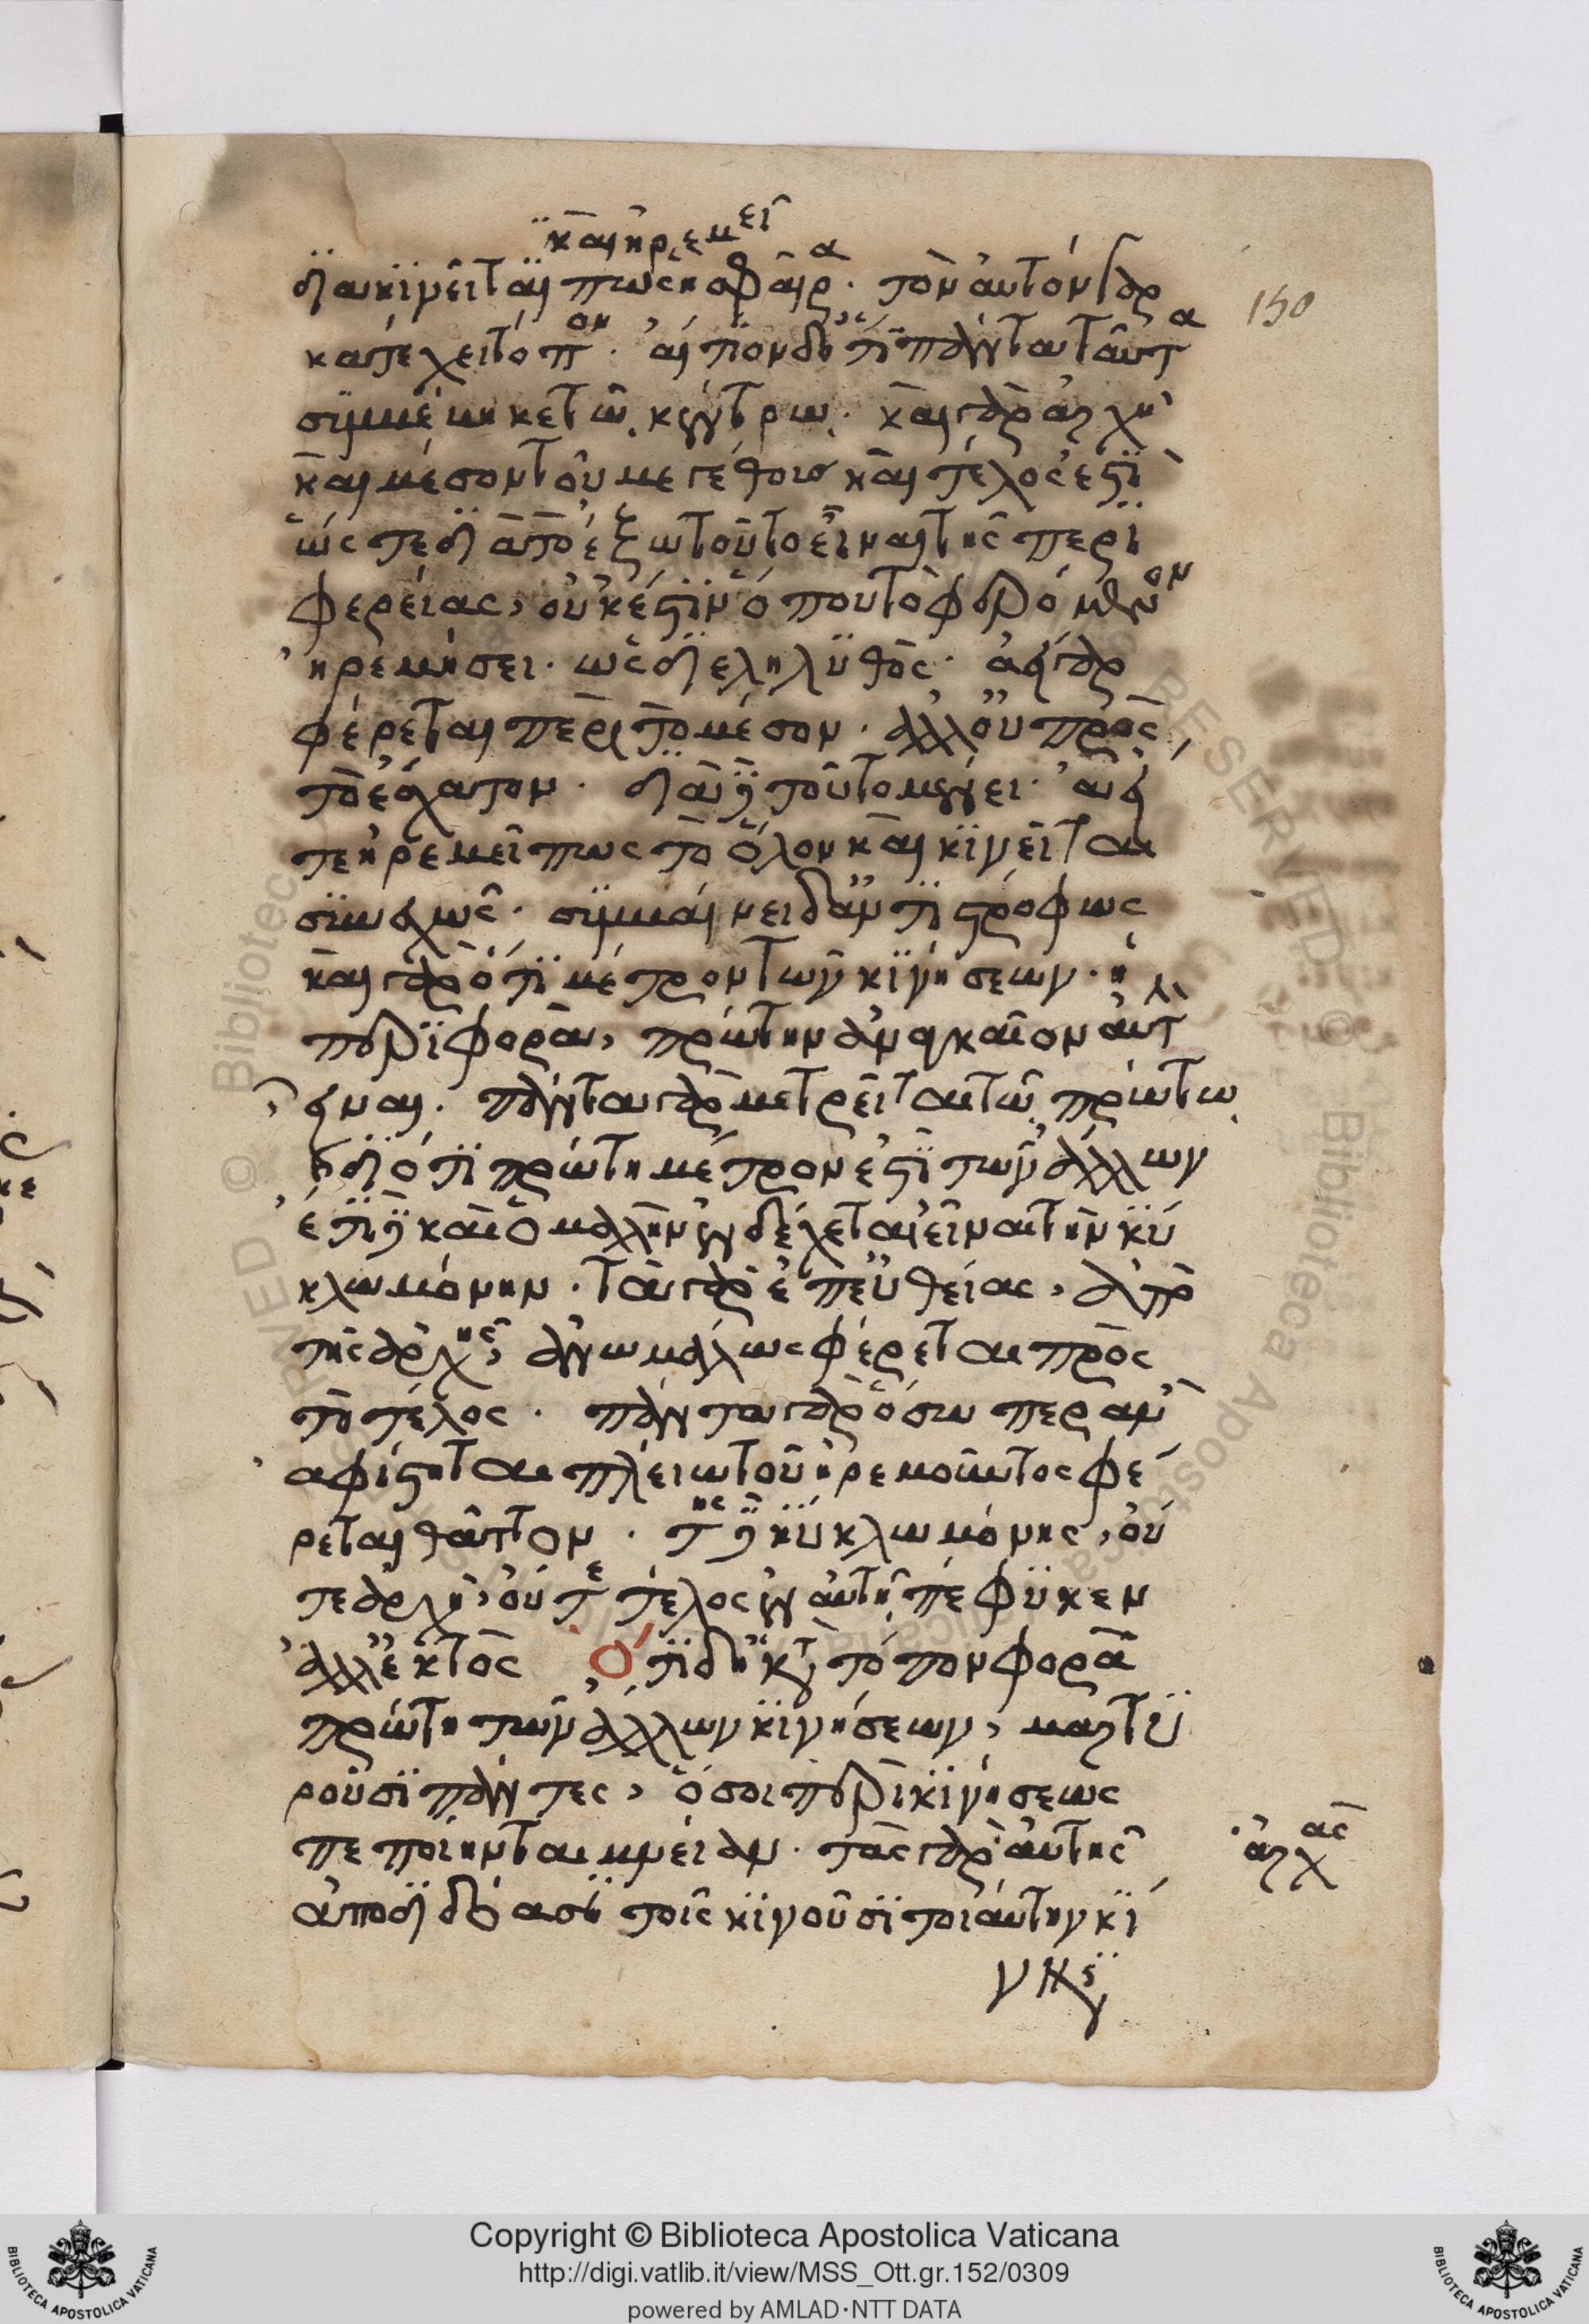 καὶ ἠρεμεῖ
διὰ κινεῖταί πως ἡ σφαῖρα. τὸν αὐτὸν γὰρ
150
κατέχει τόπον. αἴτιον δ' ὅτι πάντα ταῦτα
συμβέβηκε τῷ κέντρῳ. καὶ γὰρ ἀρχὴ
καὶ μέσον τοῦ μεγέθους καὶ τέλος ἐστὶ
ὥστε διὰ τὸ ἔξω τοῦτο εἶναι τῆς περι
φερείας, οὐκ ἔστιν ὅπου τὸ φερόμενον
ἠρεμήσει. ὡς διεληλυθός. ἀεὶ γὰρ
φέρεται περὶ τὸ μέσον. ἀλλ' οὐ πρὸς
τὸ ἔσχατον. διὰ δὲ τοῦτο μένει. ἀεί
τε ἠρεμεῖ πως τὸ ὅλον καὶ κινεῖται
συνεχῶς. συμβαίνει δ' ἀντιστρόφως
καὶ γὰρ ὅτι μέτρον τῶν κινήσεων. ἡ
περιφορὰ, πρώτην ἀναγκαῖον αὐτὴν
εἶναι. πάντα γὰρ μετρεῖται τῷ πρώτῳ
καὶ διότι πρώτη μέτρον ἐστὶ τῶν ἄλλων
ἔτι δὲ καὶ ὁμαλὴν ἐνδέχεται εἶναι τὴν κύ
κλῳ μόνην. τὰ γὰρ ἐπ' εὐθείας, ἀπὸ
τῆς ἀρχῆς, ἀνωμάλως φέρεται πρὸς
τὸ τέλος. πάντα γὰρ ὅσῳ περ ἂν
ἀφίστηται πλεῖω τοῦ ἠρεμοῦντος φέ
ρεται θᾶττον. τῆς δὲ κύκλῳ μόνης, οὔ
τε ἀρχὴ, οὔτε τέλος ἐν αὐτῇ πέφυκεν
ἀλλ' ἐκτός Ὅτι δ' ἡ κατὰ τόπον φορὰ
πρώτη τῶν ἄλλων κινήσεων, μαρτυ
ροῦσι πάντες, ὅσοι περὶ κινήσεως
πεποίηνται μνείαν. τὰς γὰρ αὐτῆς
ἀρχὰς
ἀποδιδόασι τοῖς κινοῦσι τοιαύτην κί
νησιν
Copyright © Biblioteca Apostolica Vaticana
http://digi.vatlib.it/view/MSS_Ott.gr.152/0309
powered by AMLAD·NTT DATA